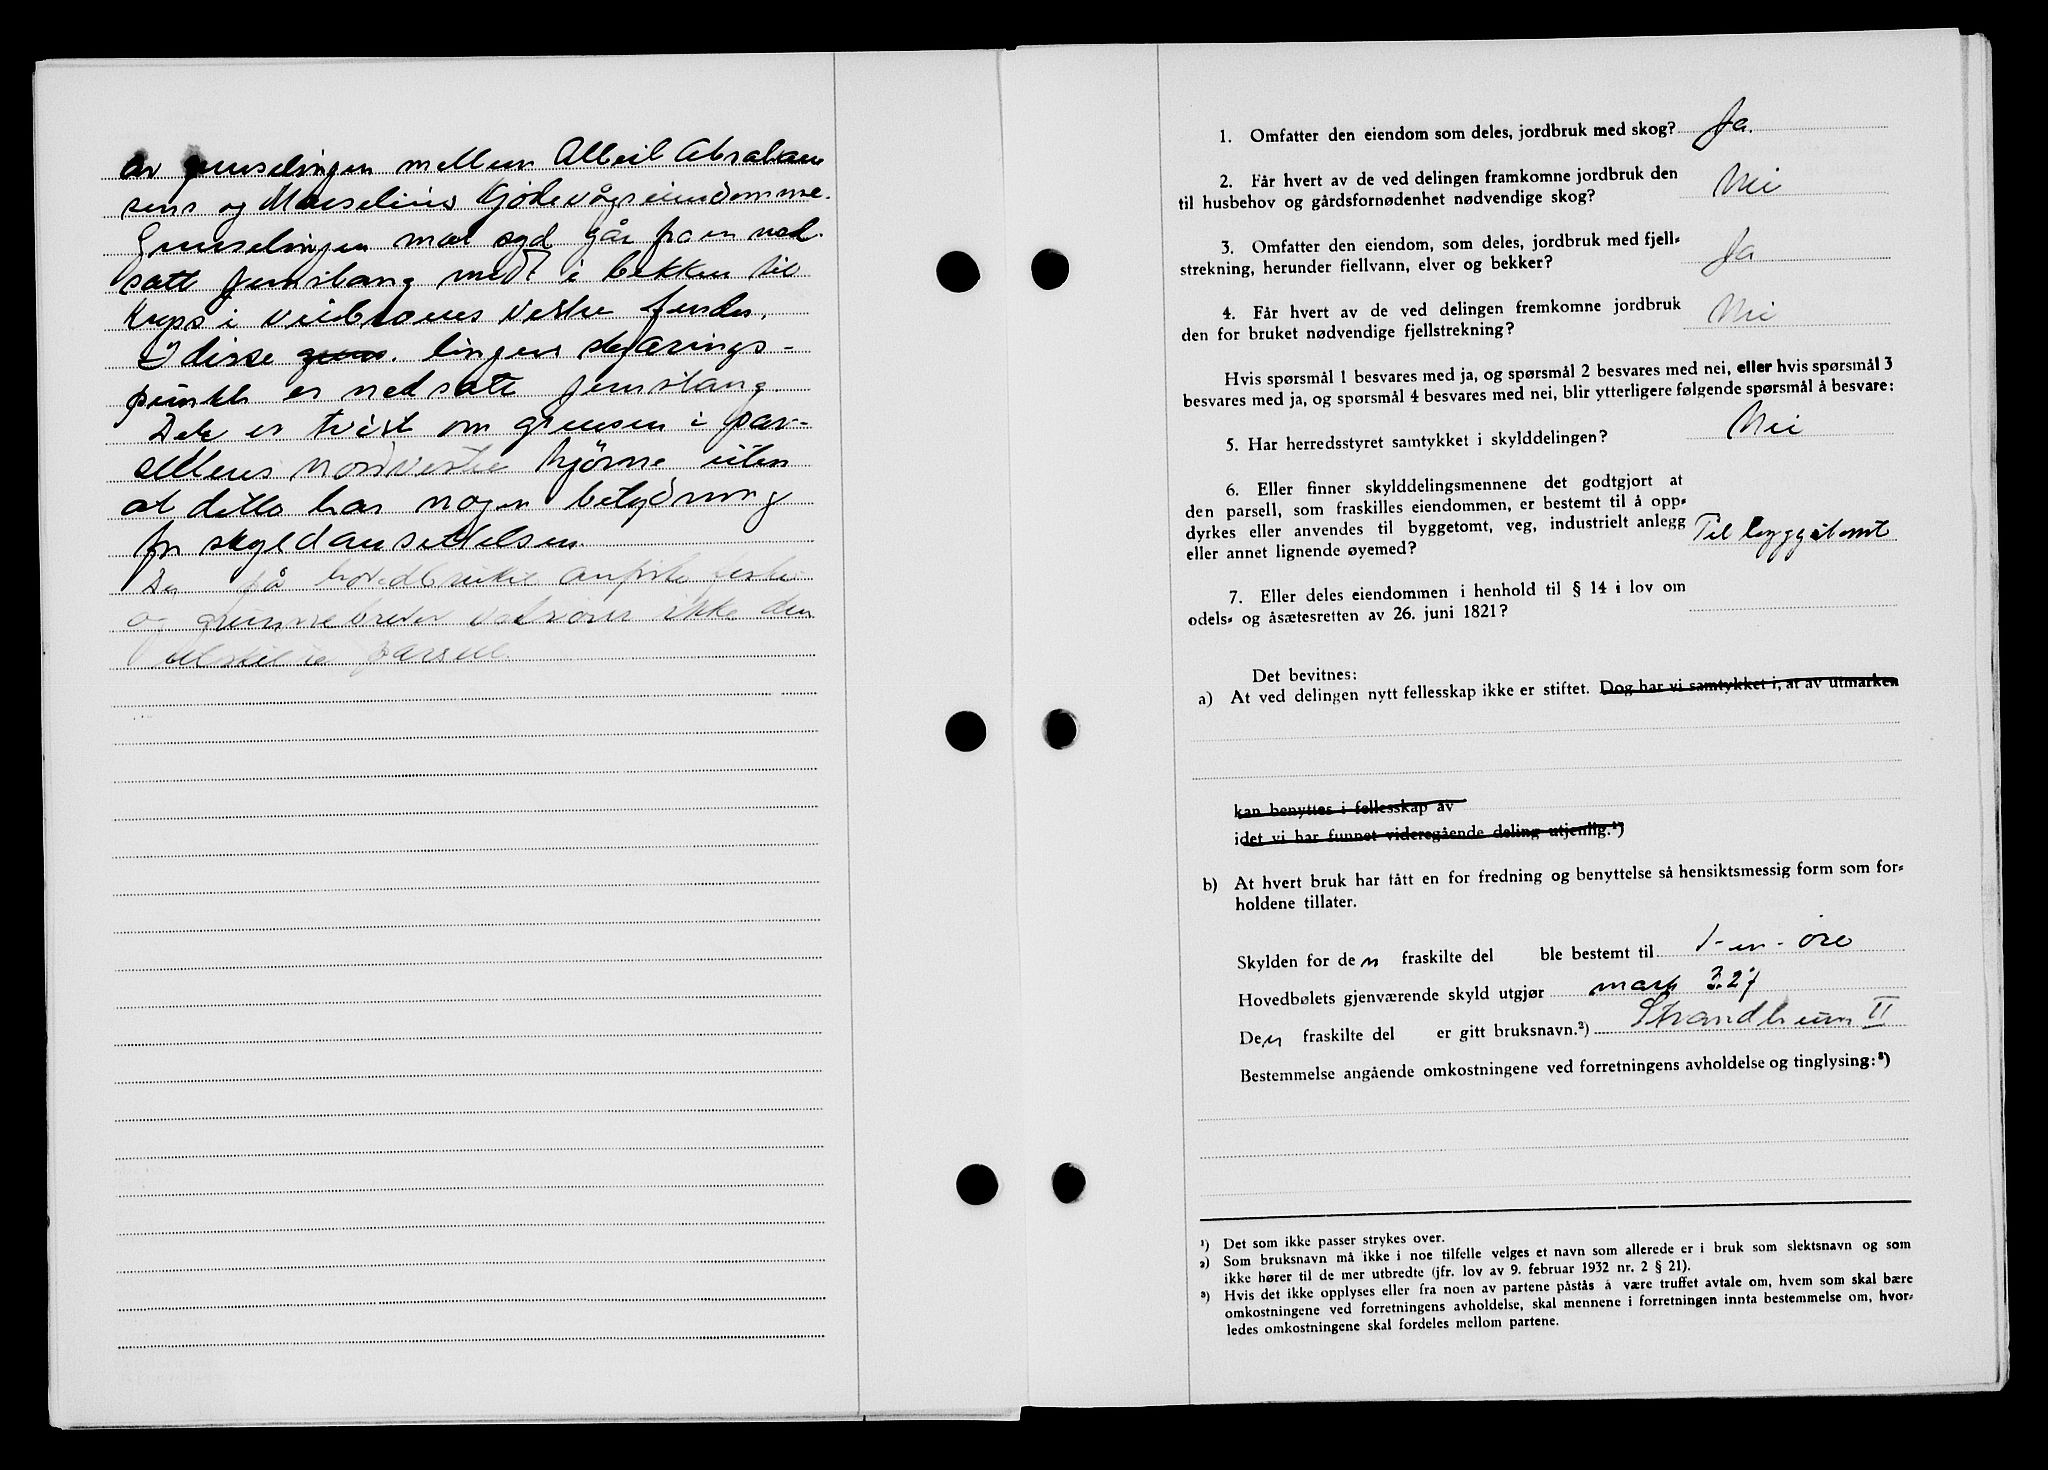 av grenselinjen mellem Albeil Abraham
sens og Marselius Kjødevågseiendomme.
Grenselinjen mot syd går fra en ned
satt jernstang midt i bekken til
kryps i veibroens vestre fender.
I disse grens. linjers skjærings-
punkt er nedsatt jernstang.
Det er tvist om grensen i par-
sellens nordvestre hjørne uten
at dette har nogen betydning
for skyldansettelsen.
De på hovedbruket anførte feste
og grunnebreder vedrører ikke den
utskilte parsell.
1. Omfatter den eiendom som deles, jordbruk med skog? Ja.
2. Får hvert av de ved delingen framkomne jordbruk den
til husbehov og gårdsfornødenhet nødvendige skog? Nei
3. Omfatter den eiendom, som deles, jordbruk med fjell-
strekning, herunder fiellvann, elver og bekker? Ja
4. Får hvert av de ved delingen fremkomne jordbruk
den for bruket nødvendige fjellstrekning? Nei
Hvis spørsmål 1 besvares med ja, og spørsmål 2 besvares med nei, eller hvis spørsmål 3
besvares med ja, og spørsmål 4 besvares med nei, blir ytterligere følgende spørsmål å besvare:
5. Har herredsstyret samtykket i skylddelingen? Nei
6. Eller finner skylddelingsmennene det godtgjort at
den parsell, som fraskilles eiendommen, er bestemt til å opp-
dyrkes eller anvendes til byggetomt, veg, industrielt anlegg
eller annet lignende øyemed? Til byggetomt
7. Eller deles eiendommen i henhold til § 14 i lov om
odels- og åsætesretten av 26. juni 1821?
Det bevitnes:
a) At ved delingen nytt fellesskap ikke er stiftet. Dog har vi samtykket i, at av utmarken
kan benyttes i fellesskap av
idet vi har funnet videregående deling utjenlig.¹)
b) At hvert bruk har fått en for fredning og benyttelse så hensiktsmessig form som for-
holdene tillater.
Skylden for den fraskilte del ble bestemt til 1-en-øre
Hovedbølets gjenværende skyld utgjør mark 3.27
Den fraskilte del er gitt bruksnavn.²) Strandheim II
Bestemmelse angående omkostningene ved forretningens avholdelse og tinglysing:³)
¹) Det som ikke passer strykes over.
²) Som bruksnavn må ikke i noe tilfelle velges et navn som allerede er i bruk som slektsnavn og som
ikke hører til de mer utbredte (jfr. lov av 9. februar 1932 nr. 2 § 21).
³) Hvis det ikke opplyses eller fra noen av partene påstås å være truffet avtale om, hvem som skal bære
omkostningene ved forretningens avholdelse, skal mennene i forretningen innta bestemmelse om, hvor-
ledes omkostningene skal fordeles mellom partene.